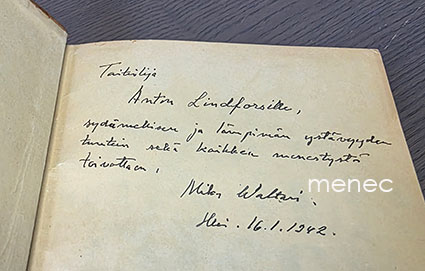 Taiteilija
Anton Lindforsille,
sydämellisen ja lämpimän ystävyyden
tuntein sekä kaikkea menestystä
toivottaen,
Mika Waltari.
menec
Hki. 16.1.1942.